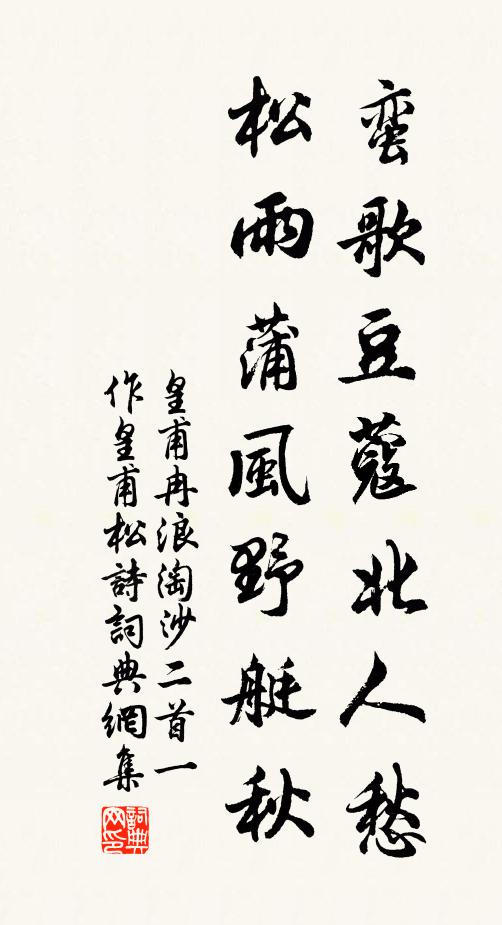 蛮歌豆蔻北人愁
松雨蒲風野艇秋
皇甫冉浪淘沙二首一
作皇甫松詩詞典網集
詞典
网印